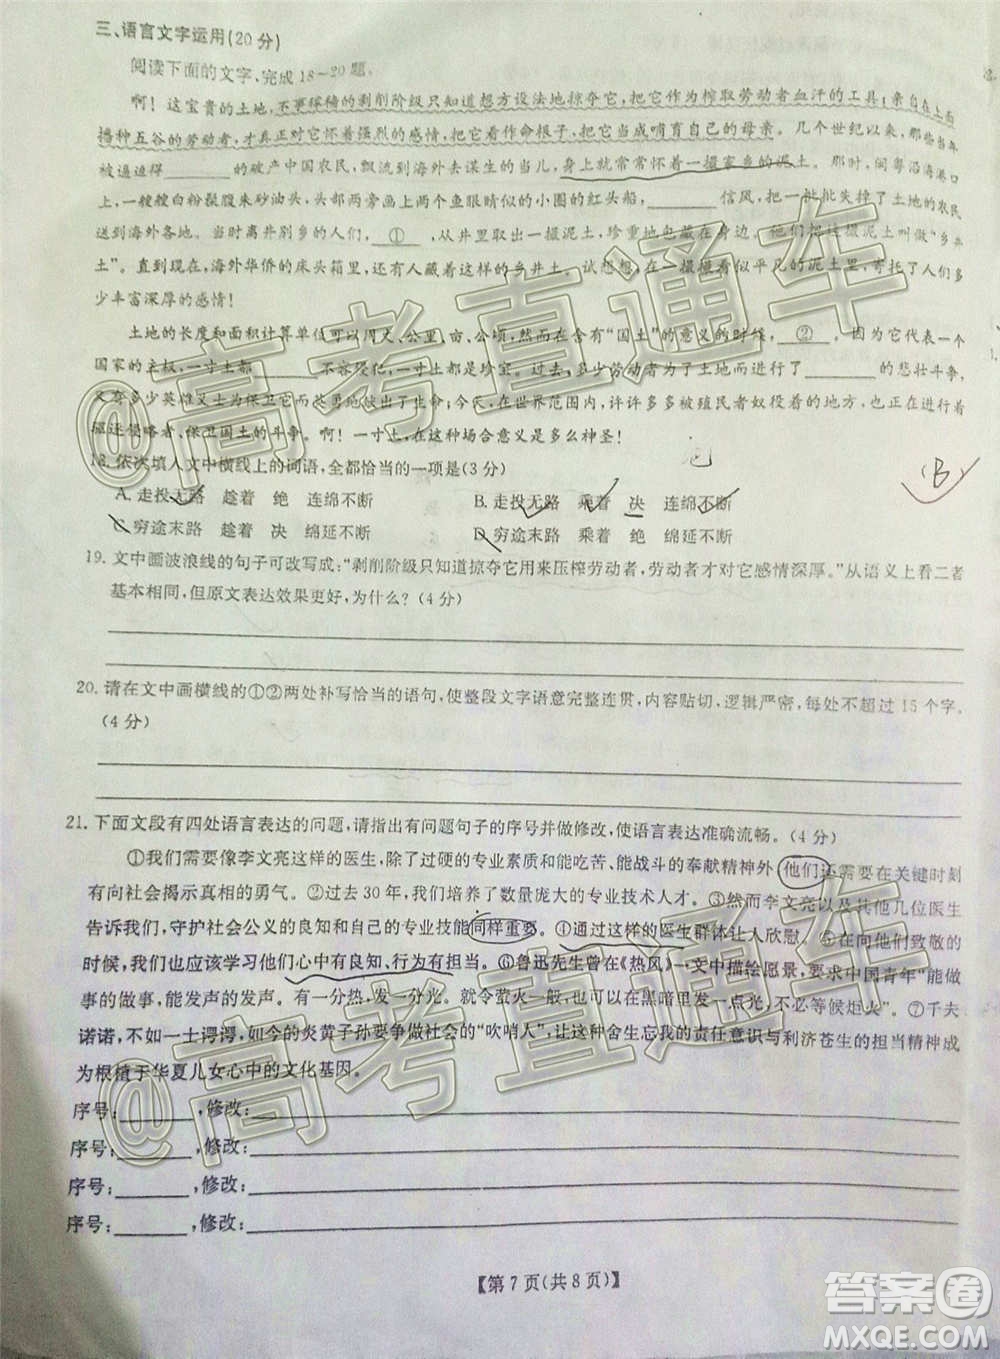 三、语言文字运用(20分)
阅读下面的文字,完成18~20题。
啊！这宝贵的土地,不事稼穑的剥削阶级只知道想方设法地掠夺它,把它作为榨取劳动者血汗的工具;亲自在上面
播种五谷的劳动者,才真正对它怀着强烈的感情,把它看作命根子,把它当成哺育自己的母亲。几个世纪以来,那些当年
被逼迫得______的破产中国农民,飘流到海外去谋生的当儿,身上就常常怀着一撮家乡的泥土。那时,闽粤沿海港口
上,一艘艘白粉髹腹朱砂油头,头部两旁画上两个鱼眼睛似的小圈的红头船,______信风,把一批批失掉了土地的农民
送到海外各地。当时离乡别井的人们,①,从井里取出一撮泥土,珍重地包藏在身边。他们把这撮泥土叫做“乡井
土”。直到现在,海外华侨的床头箱里,还有人藏着这样的乡井土。试想想,在一撮撮看似平凡的泥土里,寄托了人们多
少丰富深厚的感情！
土地的长度和面积计算单位可以用丈、公里、亩、公顷,但在含有“国土”的意义的时候,②,因为它代表了一个
国家的主权,一寸土都______不容侵犯,它们都是珍宝。过去,多少劳动者为了土地而展开了______的悲壮斗争,
又有多少英雄义士为保卫它而英勇地献出了生命;今天,在世界范围内,许许多多被殖民者奴役着的地方,也正在进行
驱逐侵略者、保卫国土的斗争。啊！一寸土,在这种场合意义是多么神圣！
18.依次填入文中横线上的词语,全都恰当的一项是(3分)
A.走投无路 趁着 绝 连绵不断
B.走投无路 乘着 决 绵绵不断
C.穷途末路 趁着 决 绵延不断
D.穷途末路 乘着 绝 绵延不断
B
19.文中画波浪线的句子可改写成:“剥削阶级只知道掠夺它用来压榨劳动者,劳动者才对它感情深厚。”从语义上看二者
基本相同,但原文表达效果更好,为什么?(4分)
20.请在文中画横线的①②两处补写恰当的语句,使整段文字语意完整连贯,内容贴切,逻辑严密,每处不超过15个字。
(4分)
21.下面文段有四处语言表达的问题,请指出有问题句子的序号并做修改,使语言表达准确流畅。(4分)
①我们需要像李文亮这样的医生,除了过硬的专业素质和能吃苦、能战斗的奉献精神外,他们还需要在关键时刻
有向社会揭示真相的勇气。②过去30年,我们培养了数量庞大的专业技术人才。③然而李文亮以及其他几位医生
告诉我们,守护社会公义的良知和自己的专业技能同样重要。④通过这样的医生群体让人欣慰。⑤在向他们致敬的
时候,我们也应该学习他们心中有良知、行为有担当。⑥鲁迅先生曾在《热风》一文中描绘愿景,要求中国青年“能做
事的做事,能发声的发声。有一分热,发一分光。就令萤火一般,也可以在黑暗里发一点光,不必等候炬火”。⑦千夫
诺诺,不如一士谔谔,如今的炎黄子孙要争做社会的“吹哨人”,让这种舍生忘我的责任意识与利济苍生的担当精神成
为根植于华夏儿女心中的文化基因。
序号:______,修改:
序号:______,修改:
序号:______,修改:
序号:______,修改:
【第7页(共8页)】
@高考直通车
@高考直通车
答案圈
MXQE.COM